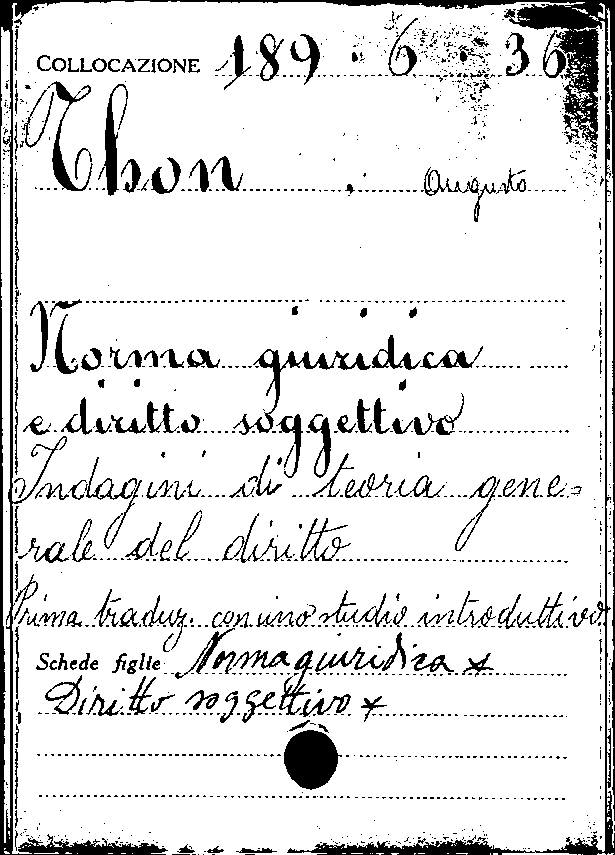 COLLOCAZIONE 189 . 6 . 36
Thon , Augusto
Norma giuridica
e diritto soggettivo
Indagini di teoria gene=
rale del diritto
Prima traduz. con uno studio introduttivo
Schede figlie Norma giuridica *
Diritto soggettivo *